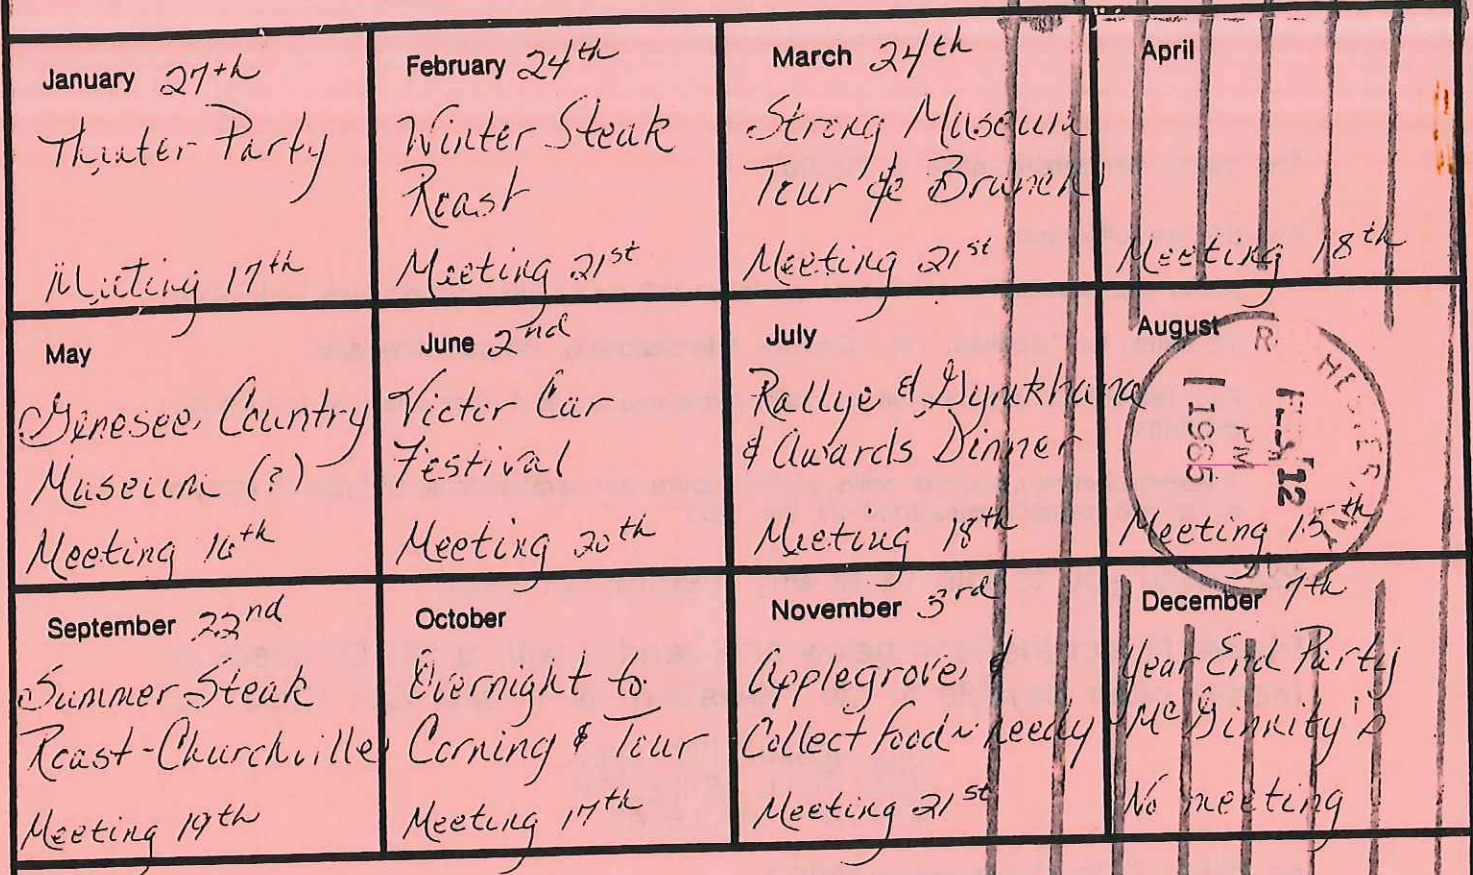 January 27th
Theater Party
Meeting 17th
February 24th
Winter Steak
Roast
Meeting 21st
March 24th
Strong Museum
Tour & Brunch
Meeting 21st
April
Meeting 18th
May
Genesee Country
Museum (?)
Meeting 16th
June 2nd
Victor Car
Festival
Meeting 20th
July
Rallye & Gymkhana
& Awards Dinner
Meeting 18th
August
Meeting 15th
R HESTER, NY
PM
12
1985
September 22nd
Summer Steak
Roast-Churchville
Meeting 19th
October
Overnight to
Corning & Tour
Meeting 17th
November 3rd
Applegrove &
Collect food~needy
Meeting 21st
December 7th
Year End Party
McGinnity's
No meeting